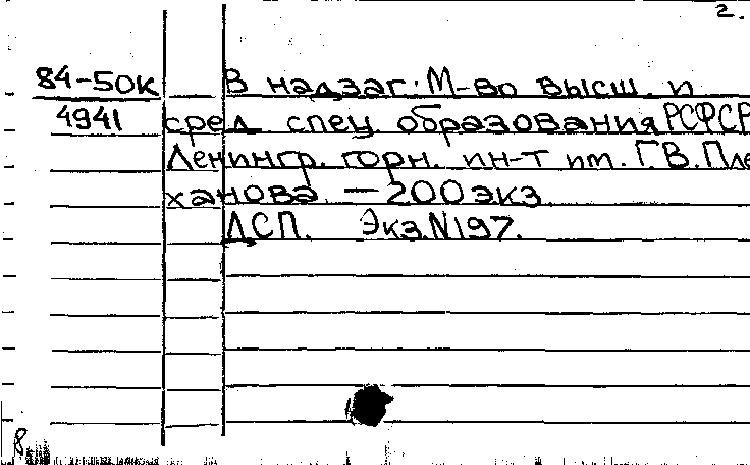 2.
84-50к В надзаг: М-во высш. и
4941 сред спец образования РСФСР
Ленингр. горн. ин-т им. Г.В. Пле
ханова. — 200 экз.
ДСП. Экз. N 197.
8